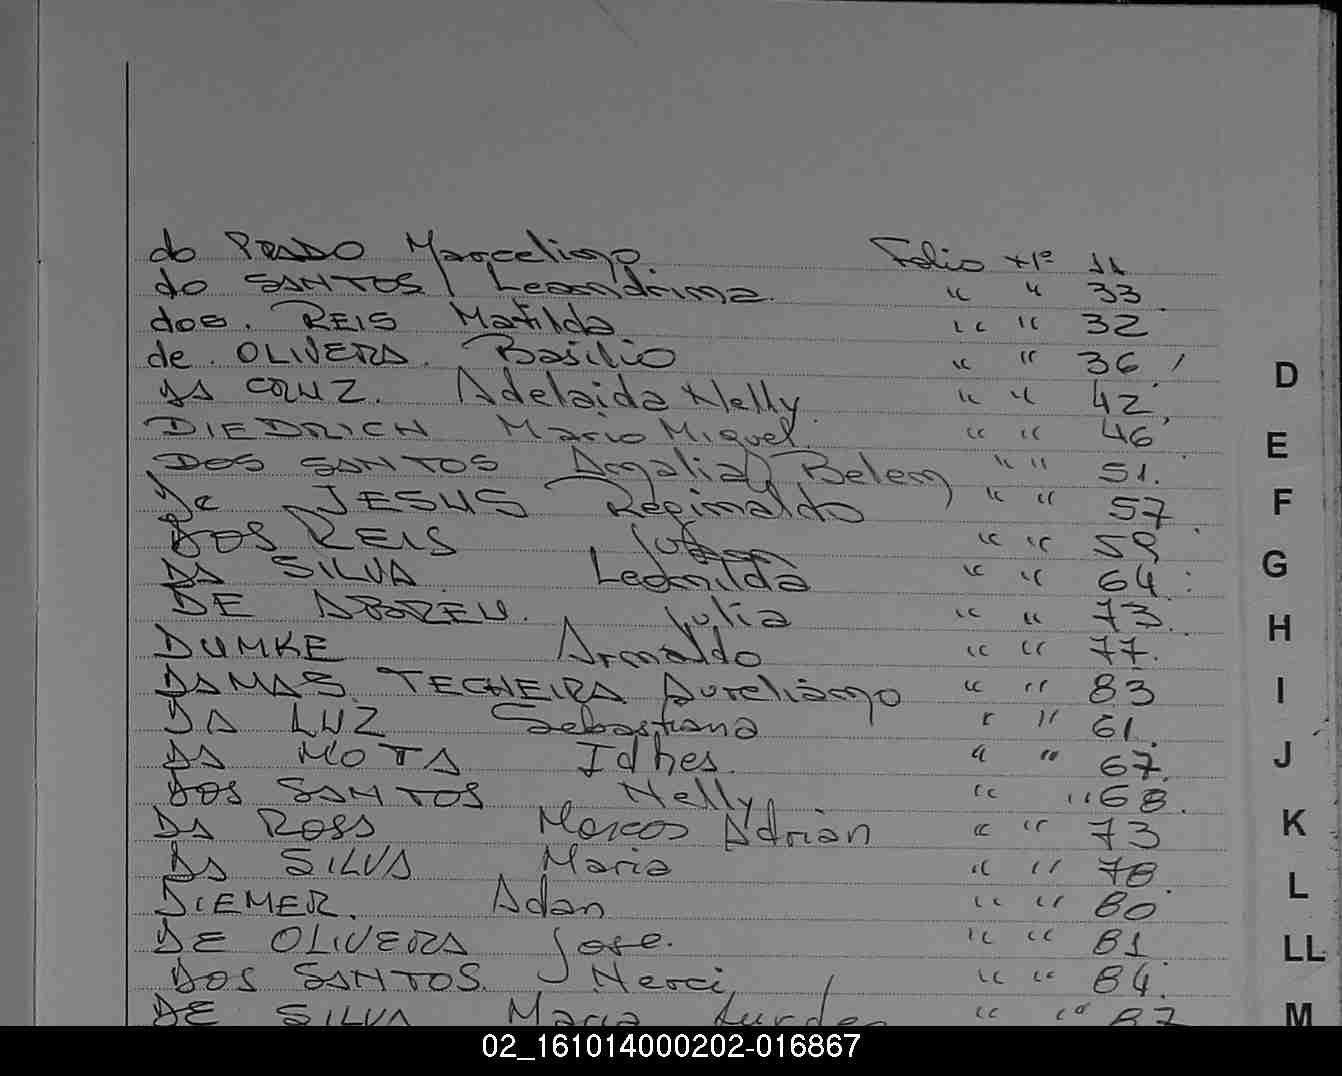 do PRADO Marcelino. Folio Nº 11
do SANTOS Leandrina. " " 33
dos. REIS Matilda " " 32
de. OLIVERA. Basilio " " 36
DA CRUZ. Adelaida Nelly " " 42
DIEDRICH Mario Miguel. " " 46
DOS SANTOS Belem " " 51.
De JESUS Reginaldo " " 57
DOS REIS " " 59
DA SILVA Leonilda " " 64
DE ABREU. Julia " " 73.
DUMKE Arnaldo " " 77.
DAMAS TECHEIRA Aureliano " " 83
DA LUZ Sebastiana " " 61.
DA MOTA Idhes. " " 67.
DOS SANTOS Nelly " " 68.
DA ROSA Marcos Adrian " " 73
DA SILVA Maria " " 78.
DIEMER. Adan " " 80
DE OLIVERA Jose. " " 81
DOS SANTOS. Nerci " " 84.
DE SILVA Maria Lurdes " " 87
D
E
F
G
H
I
J
K
L
LL
M
02_161014000202-016867